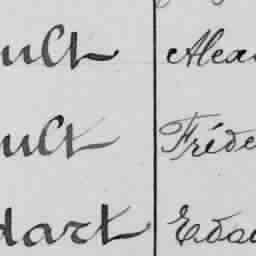 ult Alexa
ult Fréde
dart Edou